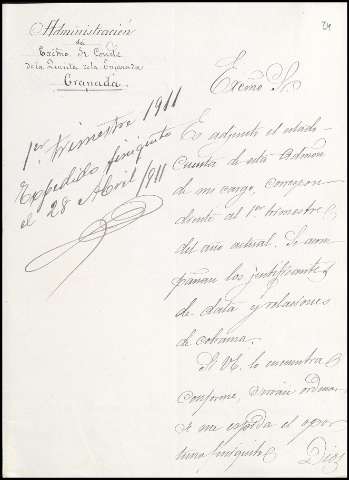 24
Administración
de
Excmo Sr Conde
de la Quinta de la Enjarada
Granada.
Excmo Sr.
1er trimestre 1911
Expedido finiquito
el 28 Abril 1911
Es adjunta el estado-
cuenta de esta Admon
de mi cargo, correspon-
diente al 1er trimestre
del año actual. Se acom-
pañan los justificantes
de data y relaciones
de cobranza.
Si VE. lo encuentra
conforme, ordenar
se me expida el opor-
tuno finiquito. Dios